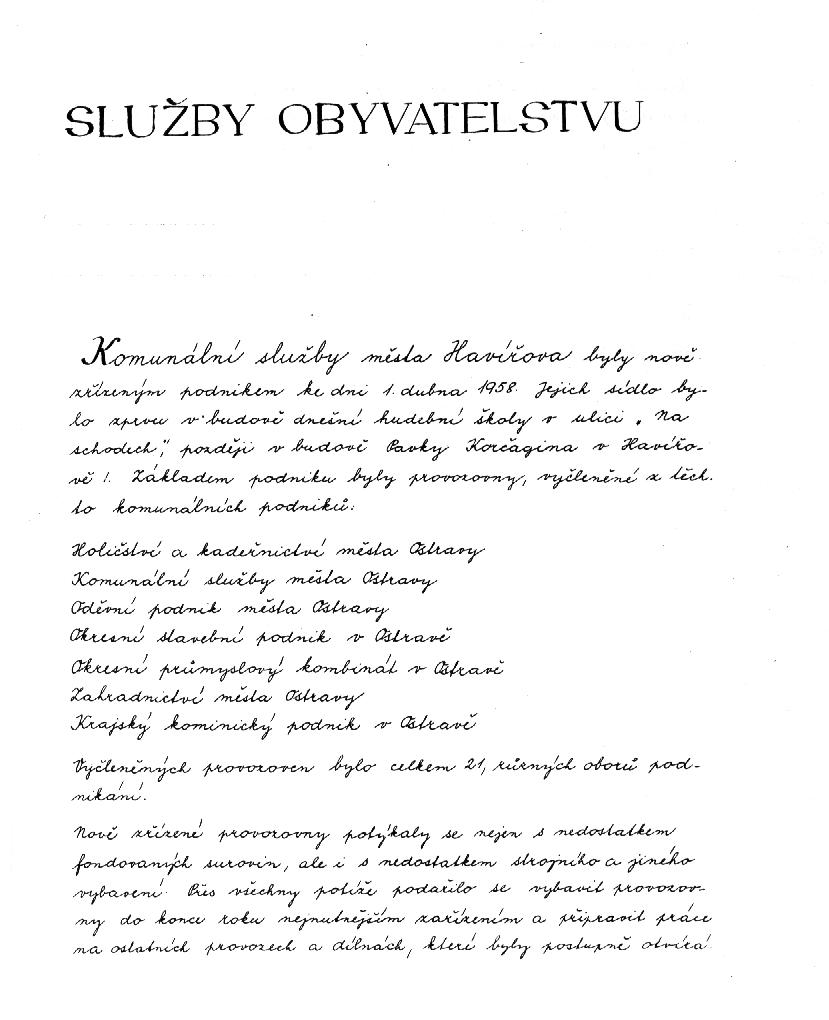 SLUŽBY OBYVATELSTVU
Komunální služby města Havířova byly nově
zřízeným podnikem ke dni 1. dubna 1958. Jejich sídlo by-
lo zprvu v budově dnešní hudební školy v ulici „Na
schodech“, později v budově Pavky Korčagina v Havířo-
vě I. Základem podniku byly provozovny, vyčleněné z těch-
to komunálních podniků:
Holičství a kadeřnictví města Ostravy
Komunální služby města Ostravy
Oděvní podnik města Ostravy
Okresní stavební podnik v Ostravě
Okresní průmyslový kombinát v Ostravě
Zahradnictví města Ostravy
Krajský kominický podnik v Ostravě
Vyčleněných provozoven bylo celkem 21, různých oborů pod-
nikání.
Nově zřízené provozovny potýkaly se nejen s nedostatkem
fondovaných surovin, ale i s nedostatkem strojního a jiného
vybavení. Přes všechny potíže podařilo se vybavit provozov-
ny do konce roku nejnutnějším zařízením a připravit práce
na ostatních provozech a dílnách, které byly postupně otvírá